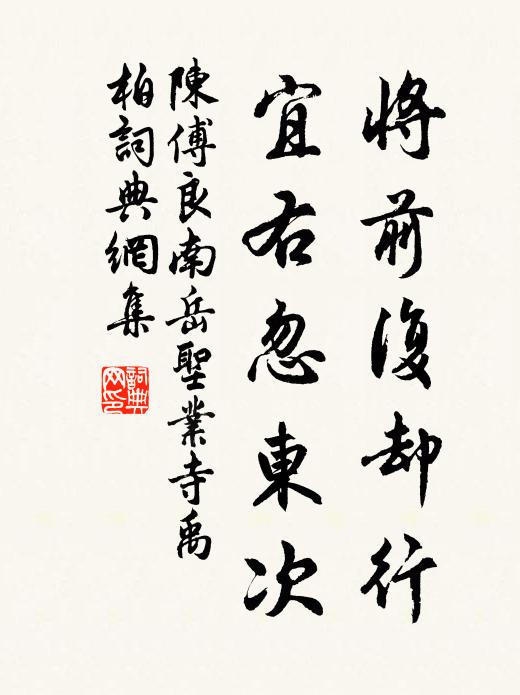 將前復却行
宜右忽東次
陳傅良南岳聖業寺禹
柏詞典網集
詞典
网印